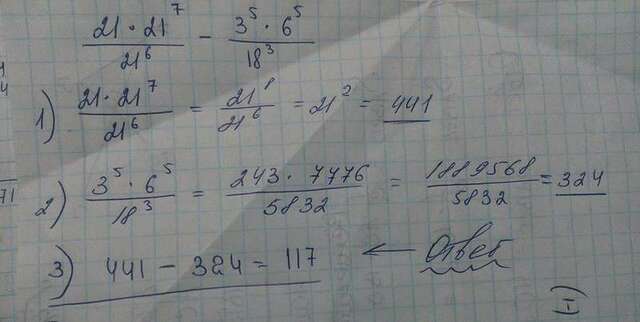 21 · 21^7 / 21^6 − 3^5 · 6^5 / 18^3
1) 21 · 21^7 / 21^6 = 21^8 / 21^6 = 21^2 = 441
71
2) 3^5 · 6^5 / 18^3 = 243 · 7776 / 5832 = 1889568 / 5832 = 324
3) 441 − 324 = 117 ← Ответ
I)